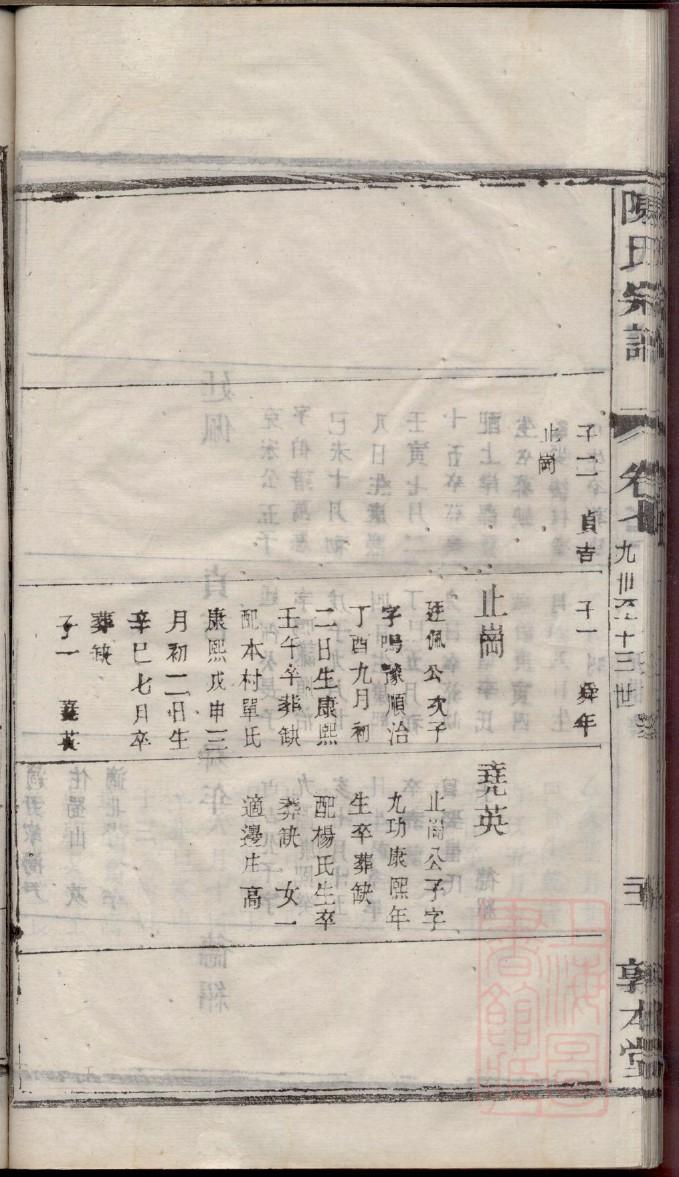 陳氏宗譜
卷七
九世至十三世
敦本堂
子二 貞吉
止崗
子一 舜年
止崗
廷佩公次子
字鳴豫順治
丁酉九月初
二日生康熙
壬午卒葬缺
配本村單氏
康熙戊申三
月初二日生
辛巳七月卒
葬缺
子一 堯英
堯英
止崗公子字
九功康熙年
生卒葬缺
配楊氏生卒
葬缺 女一
適邊庄高
上海圖書館藏